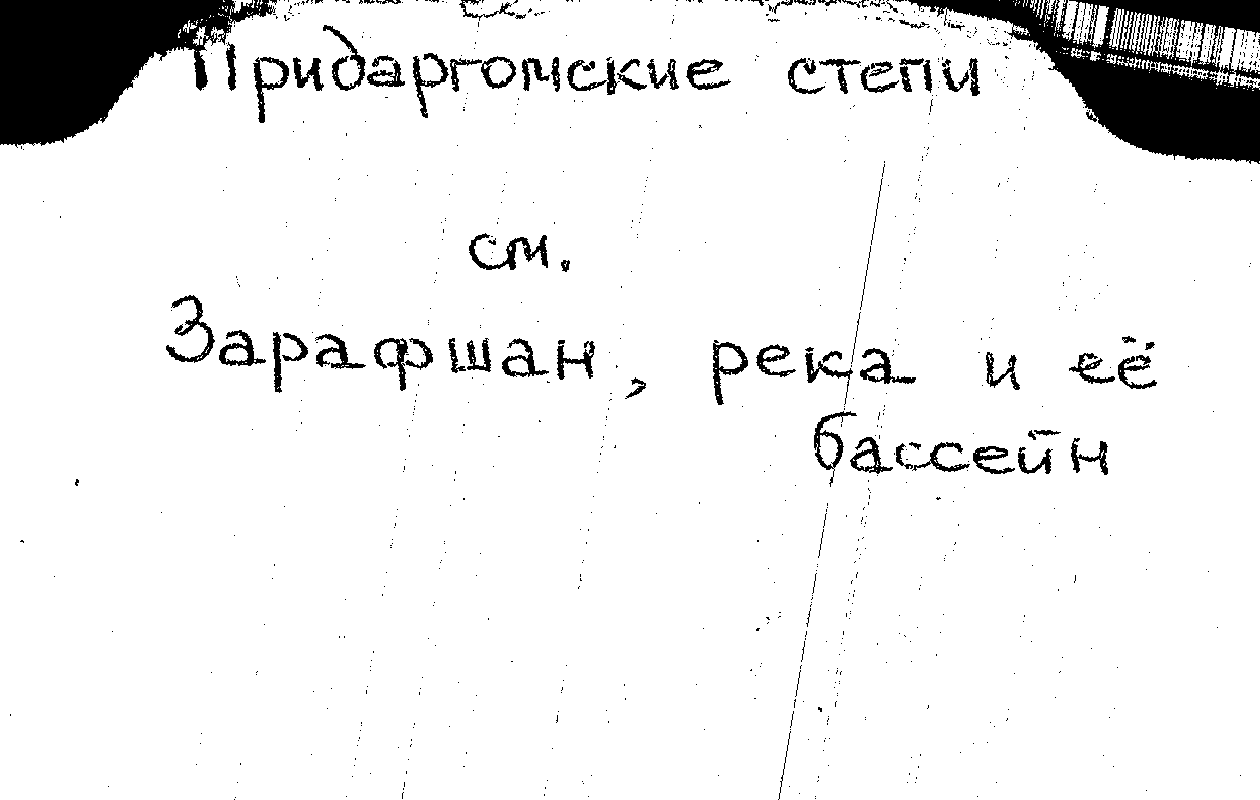 Придаргомские степи
см.
Зарафшан, река и её
бассейн